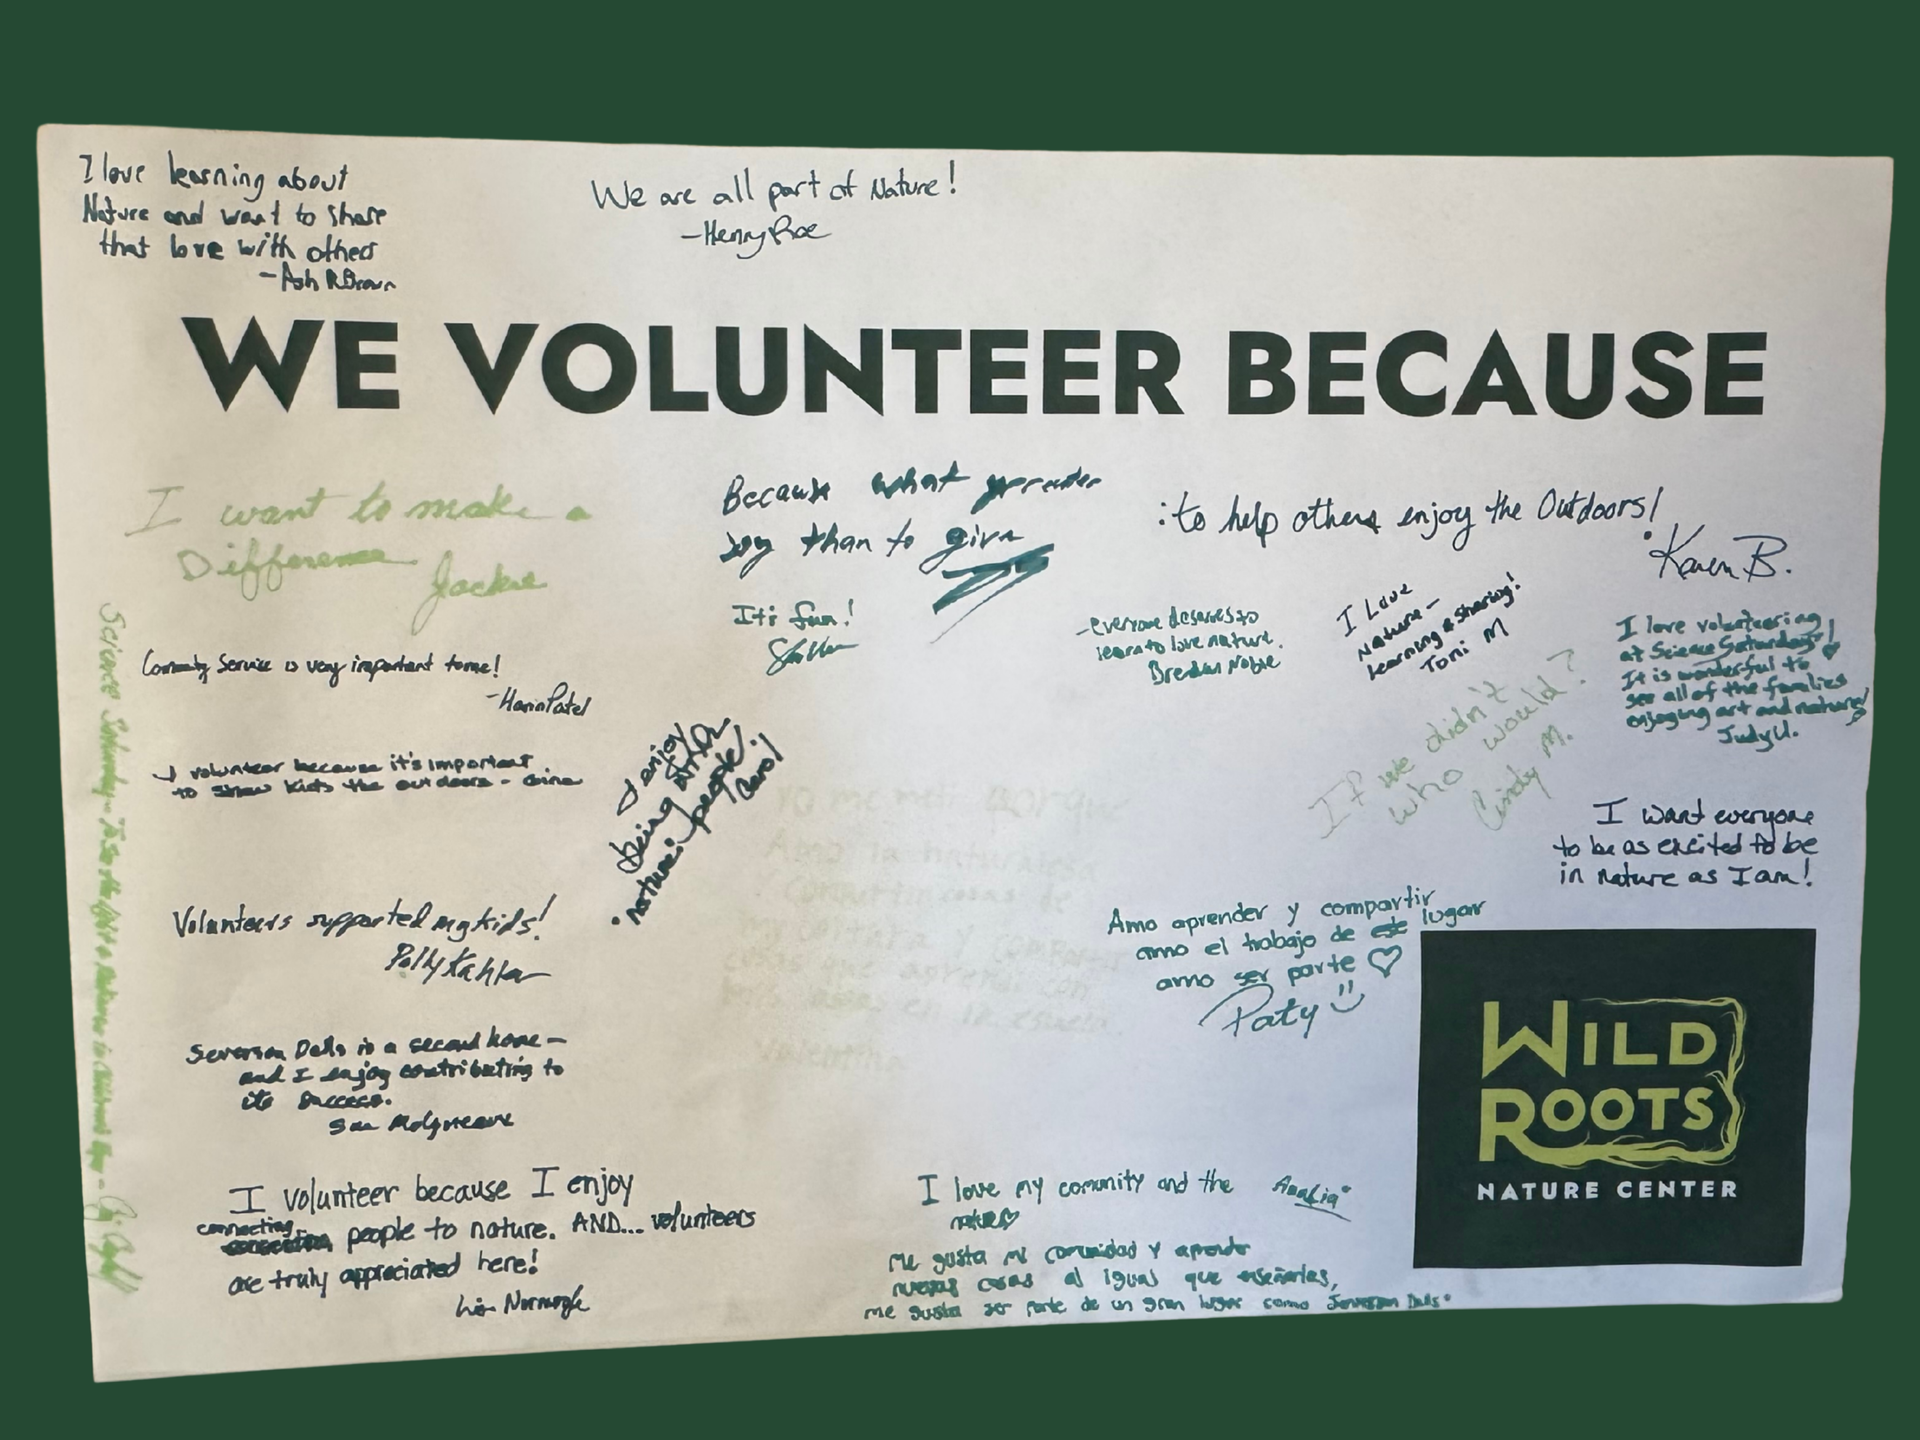 I love learning about
Nature and want to share
that love with others
- Ash R Brown
We are all part of Nature!
- Henry Roe
WE VOLUNTEER BECAUSE
I want to make a
Difference
Jackie
Because what greater
joy than to give
It's fun!
: to help others enjoy the Outdoors!
Karen B.
- everyone deserves to
learn to love nature.
Brendan Noble
I Love
Nature -
learning & sharing!
Toni M
I love volunteering
at Science Saturdays!
It is wonderful to
see all of the families
enjoying art and nature!
Judy U.
If we didn't
who would?
Cindy M.
Commuity Service is very important to me!
- Harin Patel
I volunteer because it's important
to show kids the outdoors -
I enjoy
being
nature: people!
Carol
I want everyone
to be as excited to be
in nature as I am!
Yo me porque
Amo la naturaleza
compartir cosas de
mi cultura y compartir
cosas que aprendi con
en la escuela
Valentina
Volunteers supported my kids!
Polly Kahler
Amo aprender y compartir
amo el trabajo de este lugar
amo ser parte ♡
Paty
Severson Dells is a second home -
and I enjoy contributing to
its success.
Sue
Science Saturday -
I volunteer because I enjoy
connecting people to nature. AND... volunteers
are truly appreciated here!
I love my comunity and the
nature♡
Analia
Me gusta mi comunidad y aprender
nuevas cosas al igual que enseñarlas,
me gusta ser parte de un gran lugar como Severson Dells.
WILD
ROOTS
NATURE CENTER